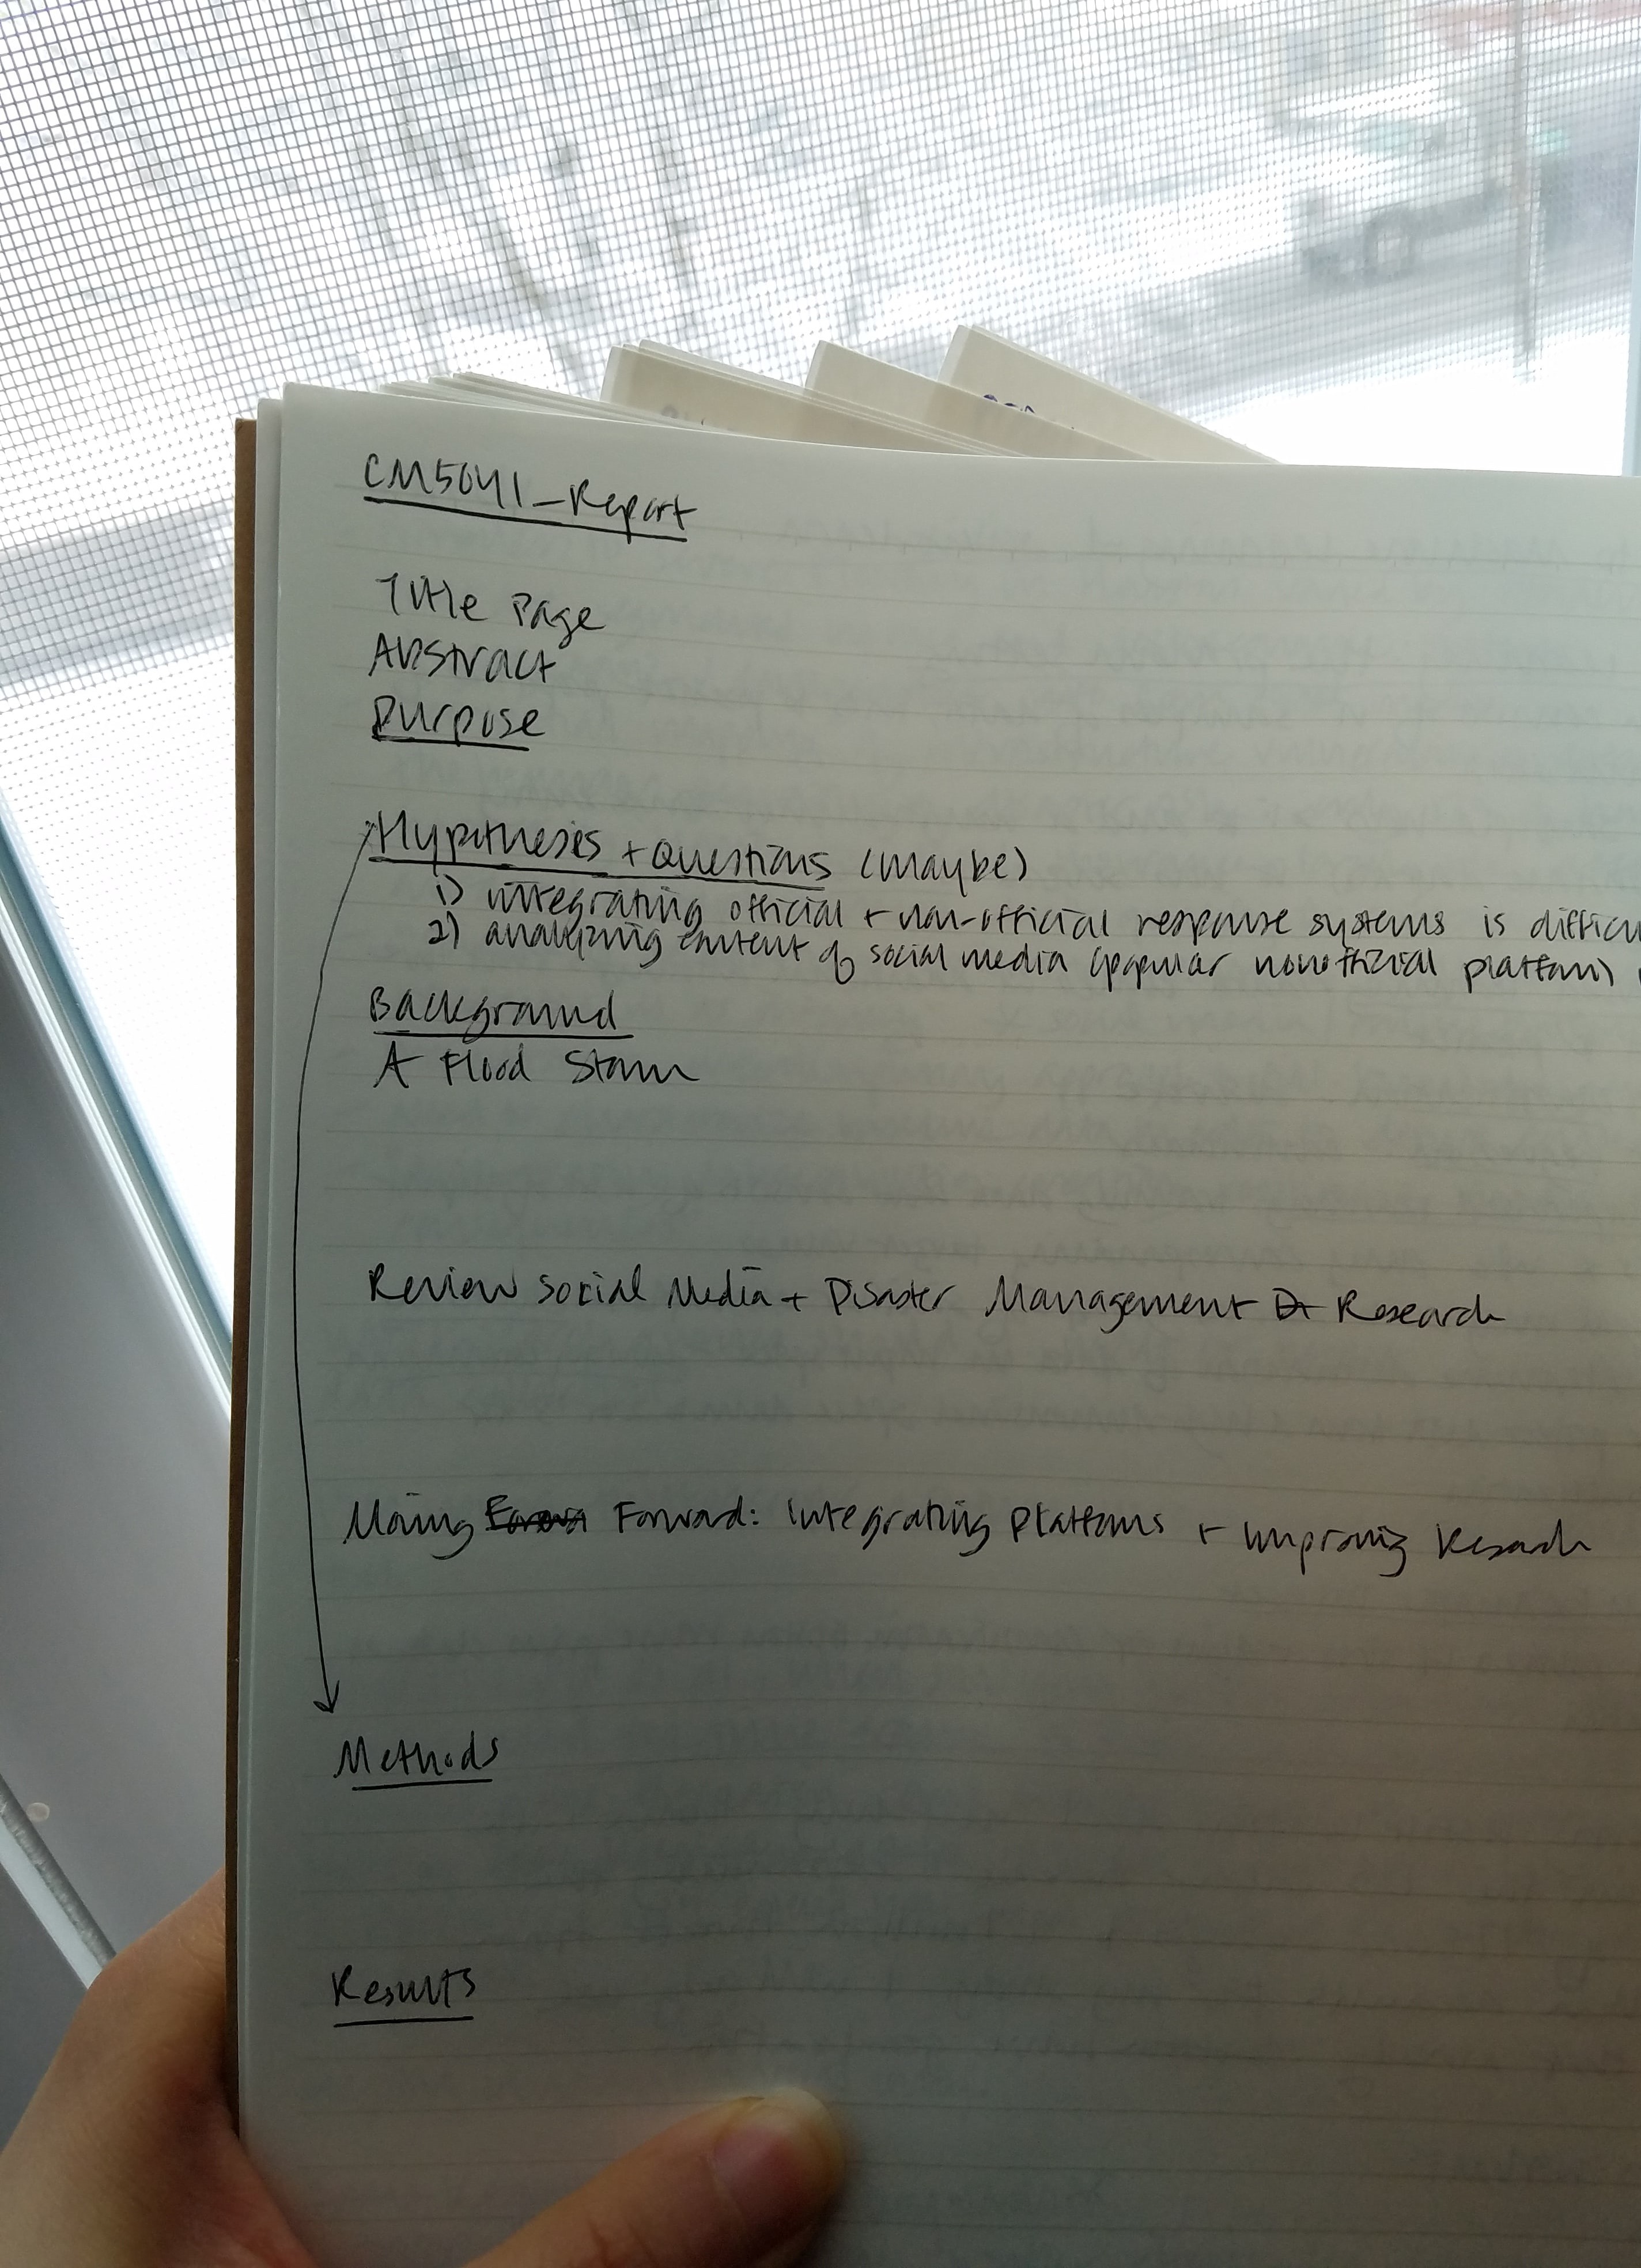 CM5041_Report
Title Page
Abstract
Purpose
Hypotheses + Questions (maybe)
1) integrating official + non-official response systems is difficu
2) analyzing content of social media (popular nonofficial platform)
Background
A Flood Storm
Review Social Media + Disaster Management Research
Moving Forward: Integrating Platforms + Improving Research
Methods
Results